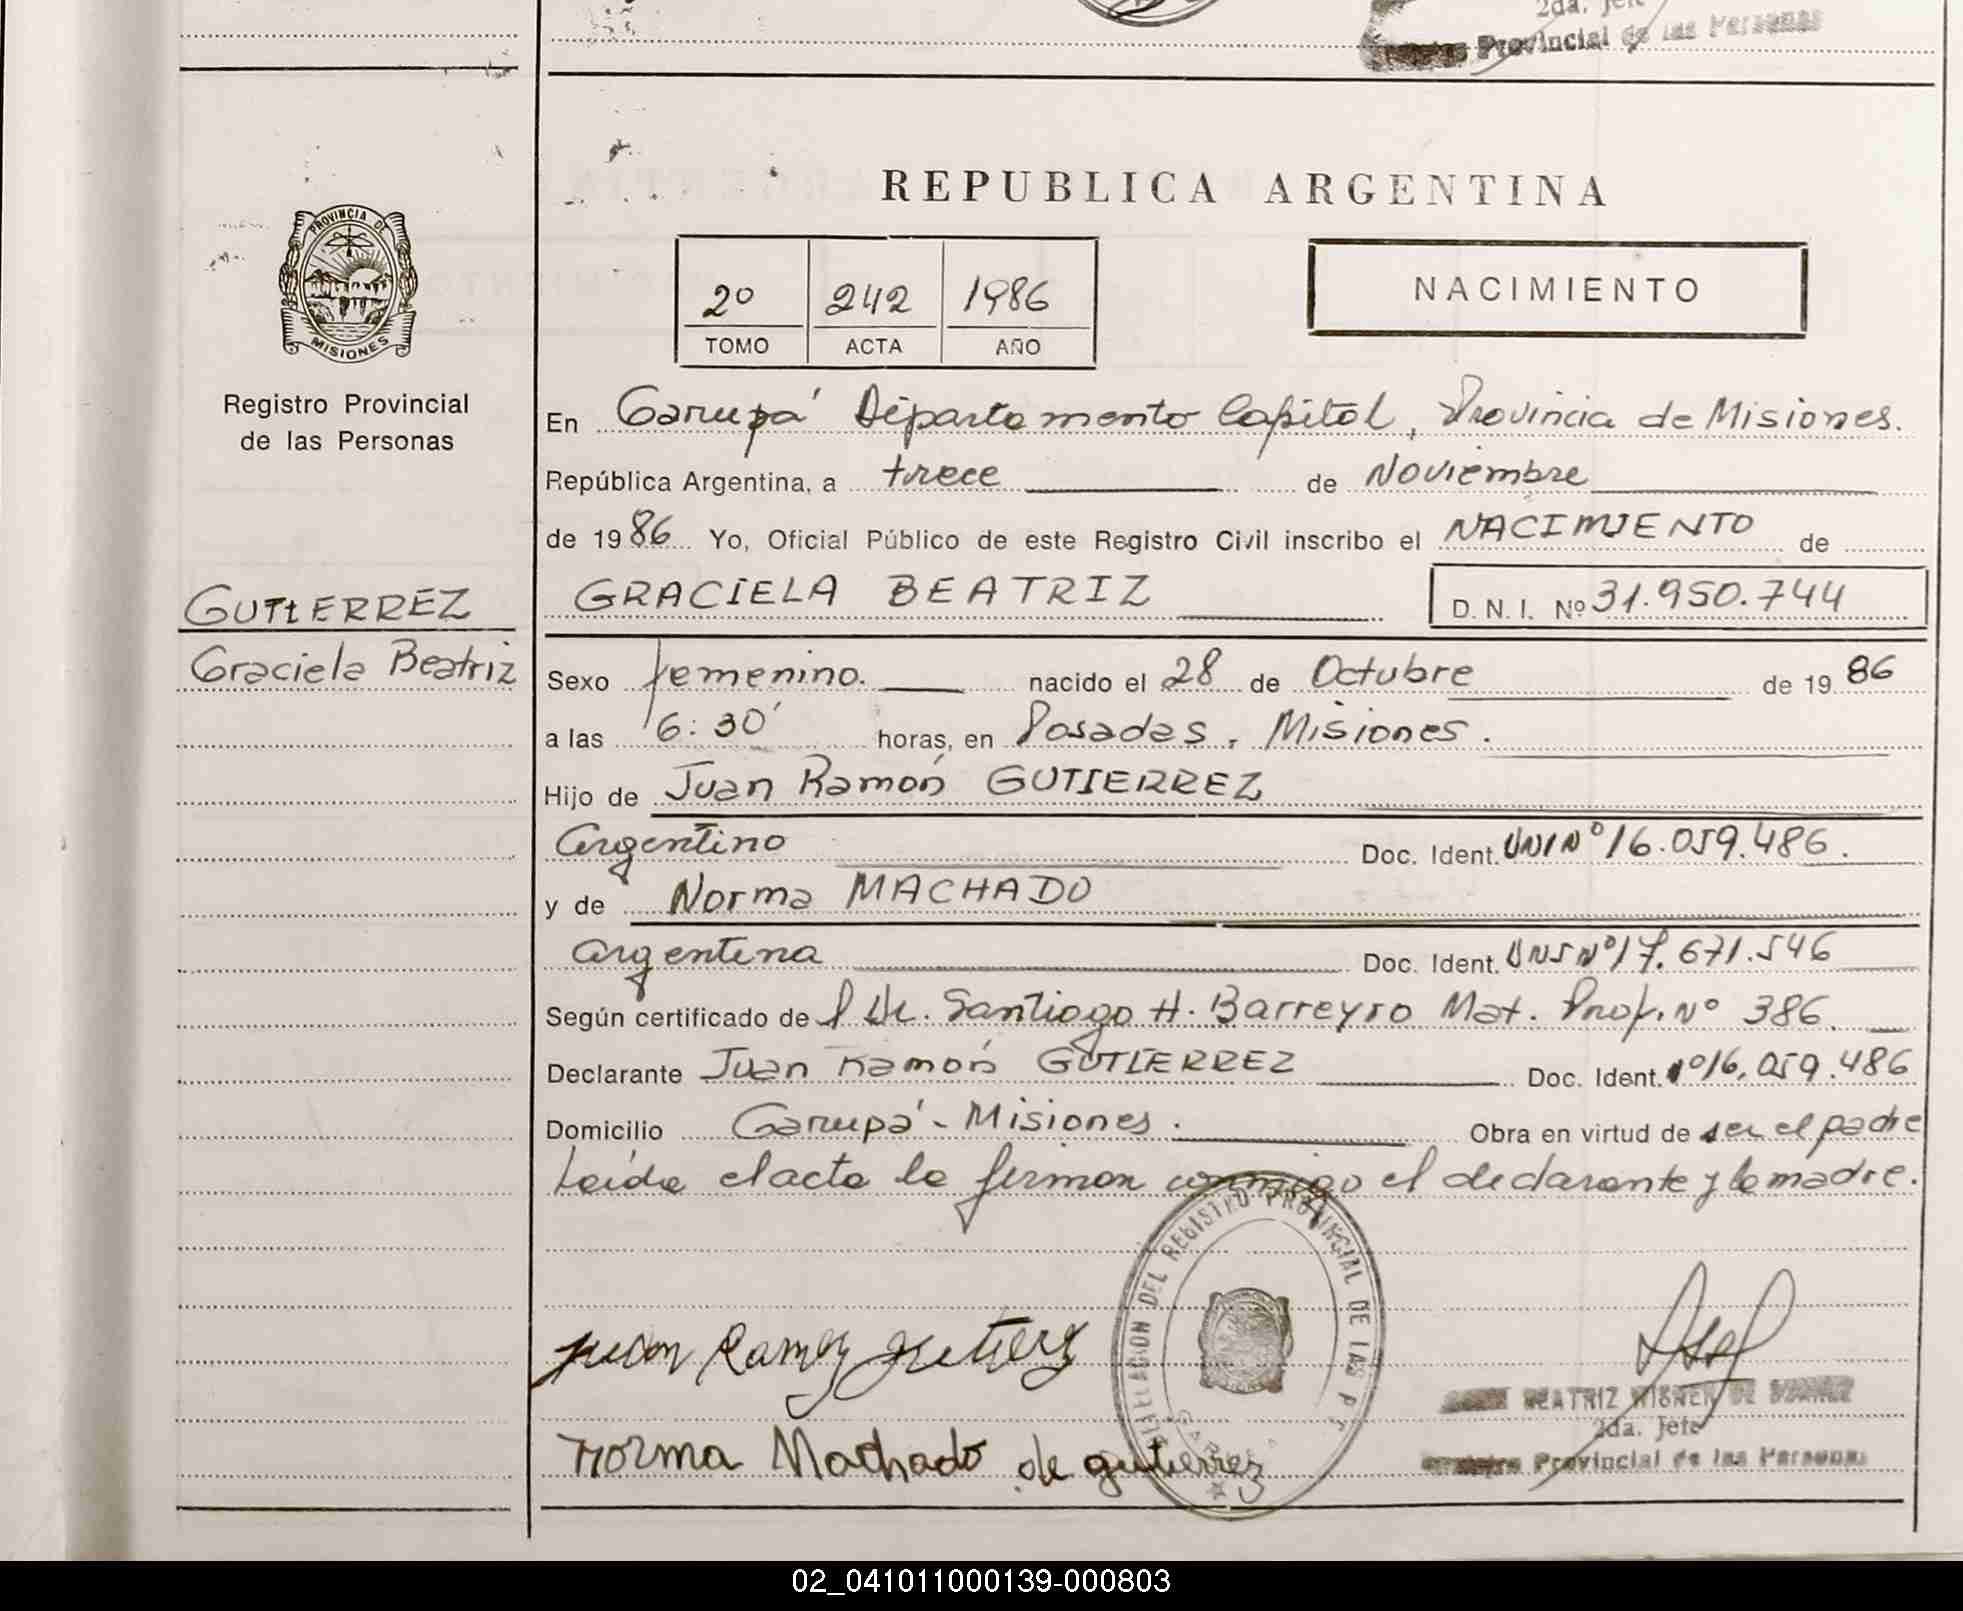 2da. Jefe
Provincial de las Personas
PROVINCIA DE
MISIONES
Registro Provincial
de las Personas
REPUBLICA ARGENTINA
2º 242 1986
TOMO ACTA AÑO
NACIMIENTO
En Garupá Departamento Capital, Provincia de Misiones.
República Argentina, a trece de Noviembre
de 1986 Yo, Oficial Público de este Registro Civil inscribo el NACIMIENTO de
GUTIERREZ
GRACIELA BEATRIZ D.N.I. Nº 31.950.744
Graciela Beatriz
Sexo femenino. nacido el 28 de Octubre de 1986
a las 6:30' horas, en Posadas, Misiones.
Hijo de Juan Ramón GUTIERREZ
Argentino Doc. Ident. DNI Nº 16.059.486.
y de Norma MACHADO
Argentina Doc. Ident. DNI Nº 17.671.546
Según certificado de Dr. Santiago H. Barreyro Mat. Prof. Nº 386.
Declarante Juan Ramón GUTIERREZ Doc. Ident. Nº 16.059.486
Domicilio Garupá - Misiones. Obra en virtud de ser el padre
Leída el acta la firman conmigo el declarante y la madre.
DELEGACION DEL REGISTRO PROVINCIAL DE LAS
GARUPA
Juan Ramon Gutierrez
BEATRIZ DE
2da. Jefe
Provincial de las Personas
Norma Machado de gutierrez
02_041011000139-000803